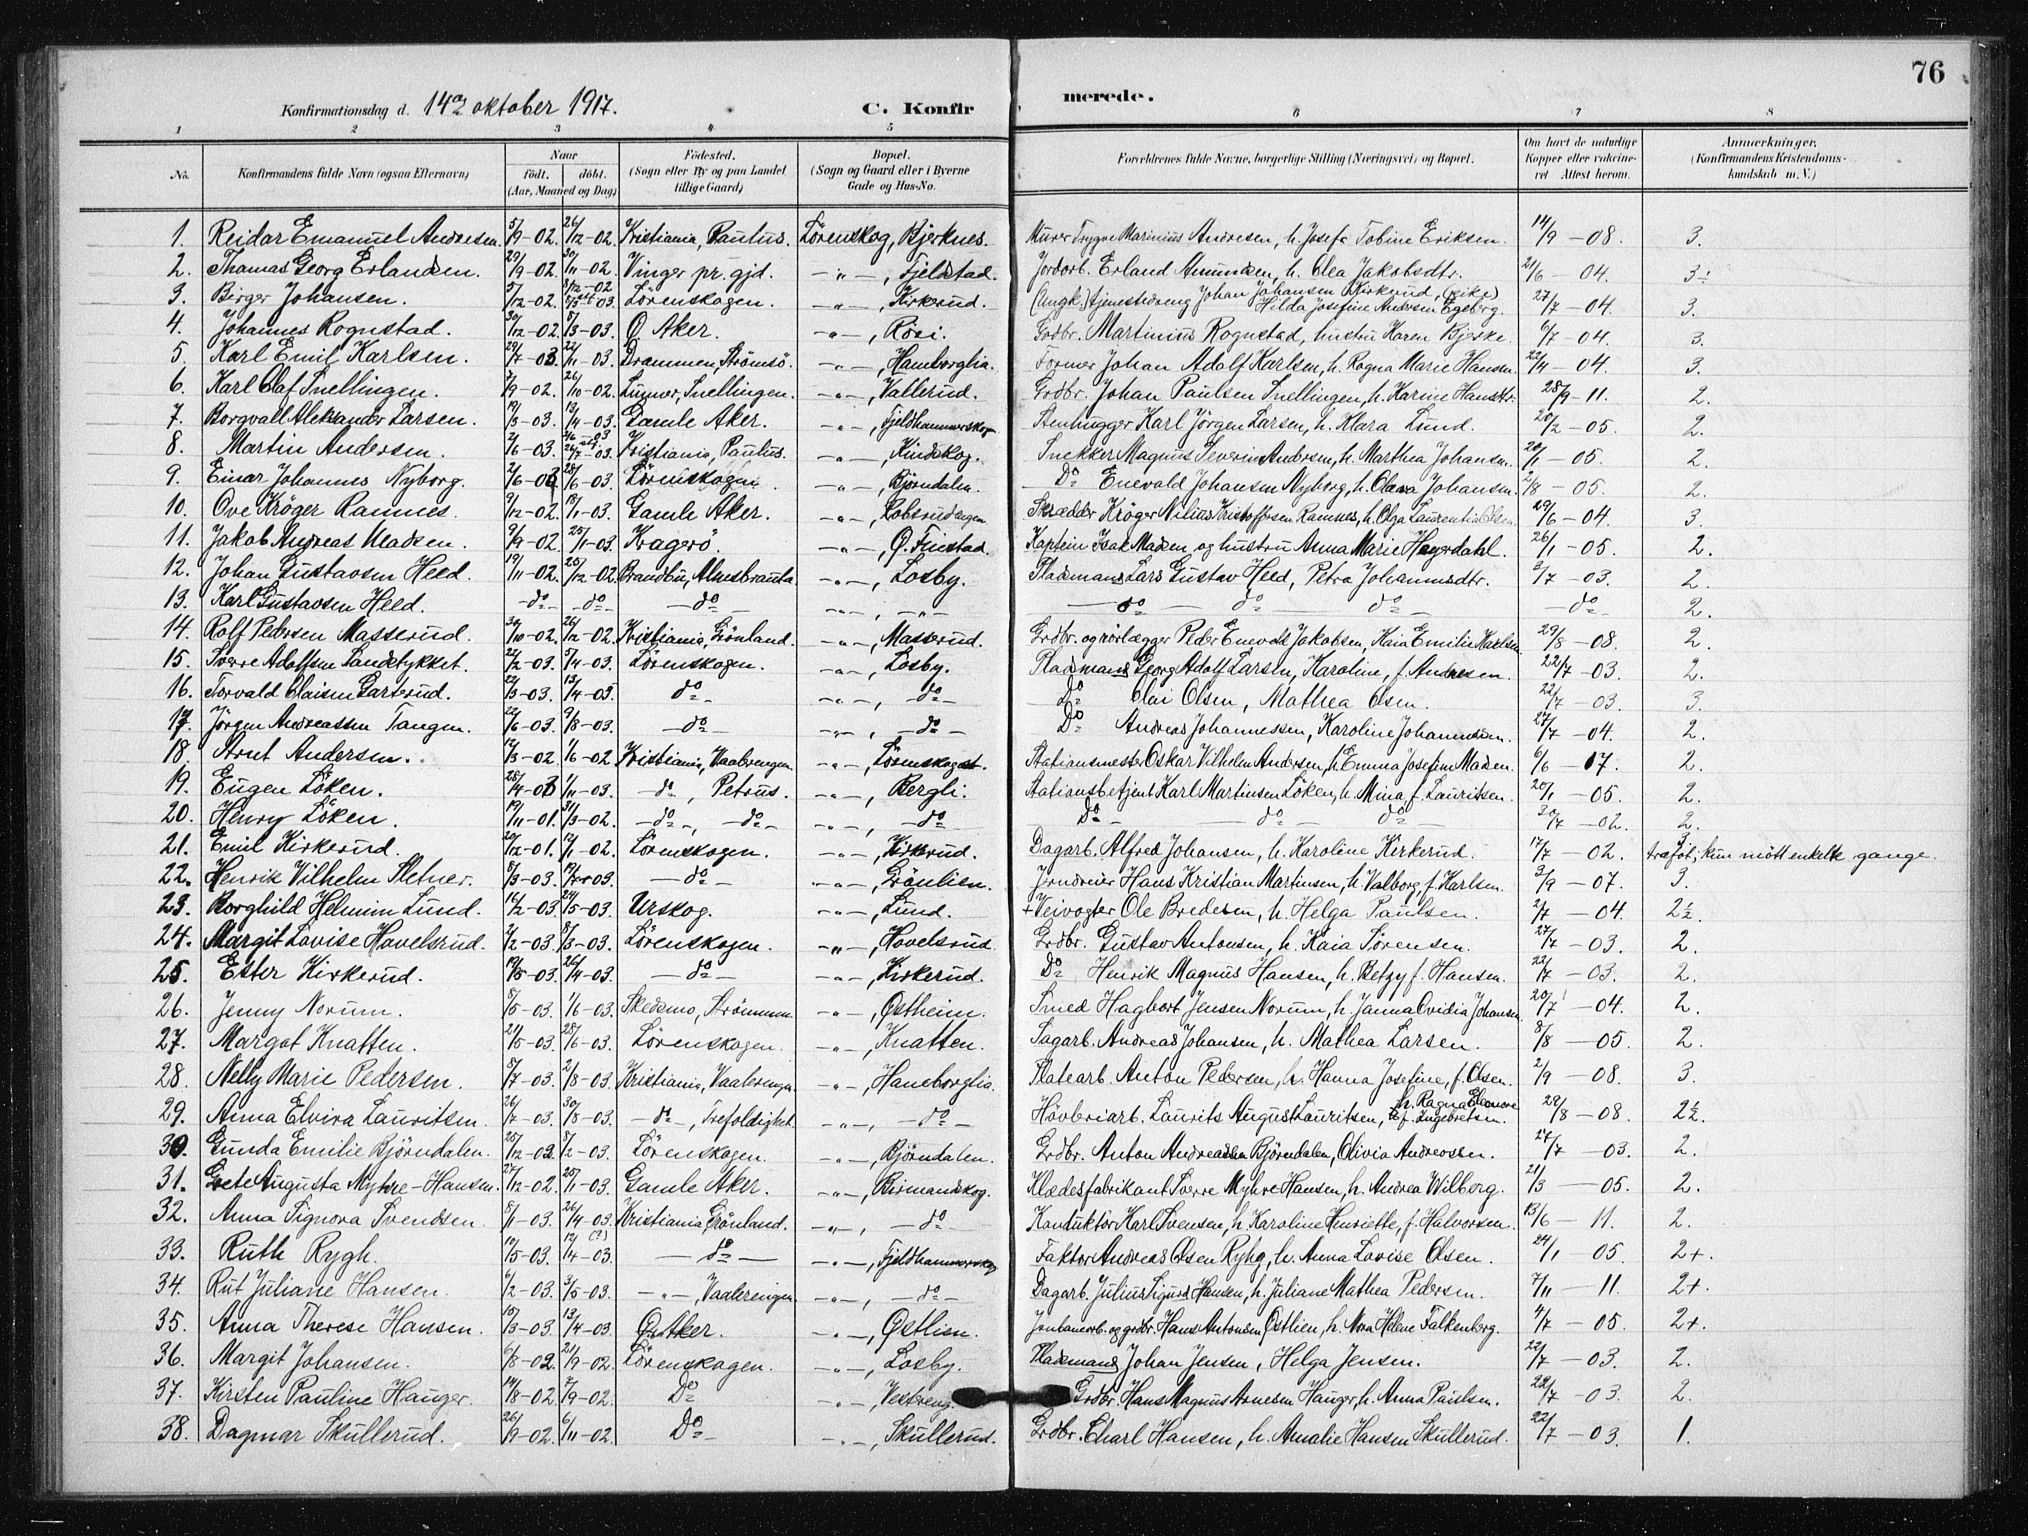 76
Konfirmationsdag d. 14de oktober 1917. C. Konfirmerede.
1 2 3 4 5 6 7 8
No. Konfirmandens fulde Navn (ogsaa Efternavn) Naar født. døbt. (Aar, Maaned og Dag) Fødested. (Sogn eller By og paa Landet tillige Gaard) Bopæl. (Sogn og Gaard eller i Byerne Gade og Hus-No. Forældrenes fulde Navne, borgerlige Stilling (Næringsvei) og Bopæl. Om havt de naturlige Kopper eller vakcineret Attest herom. Anmærkninger. (Konfirmandens Kristendomskundskab m. V.)
1. Reidar Emanuel Andresen. 5/9-02. 26/12-02. Kristiania, Paulus. Lörenskog, Bjerknes. Murer Trygve Marinius Andresen, h. Josefa Tobine Eriksen. 14/9-08. 3.
2. Thomas Georg Erlandsen. 29/9-02. 30/11-02. Vinger pr. gjd. -"-, Fjeldstad. Jordarb. Erland Amundsen, h. Olea Jakobsdtr. 21/6-04. 3÷
3. Birger Johansen. 5/12-02. Lörenskogen. -"-, Kirkerud. (Ungk.) tjenestedreng Johan Johansen Kirkerud, (pike) Hilda Josefine Andersen Egeberg. 27/7-04. 3.
4. Johannes Rognstad. 30/12-02. 8/3-03. Ö. Aker. -"-, Rösi. Grdbr. Martinius Rognstad, hustru Karen Bjerke. 6/7-04. 3.
5. Karl Emil Karlsen. 29/7-03. 22/11-03. Drammen, Strømsö. -"-, Hamborglia. Former Johan Adolf Karlsen, h. Ragna Marie Hansen. 22/4-04. 3.
6. Karl Olaf Snellingen. 7/9-02. 26/10-02. Lunner, Snellingen. -"-, Vallerud. Grdbr. Johan Paulsen Snellingen, h. Karine Hansdtr. 28/9-11. 2.
7. Borgvall Aleksander Larsen. 19/3-03. 13/4-03. Gamle Aker. -"-, Fjeldhammerskog Stenhugger Karl Jörgen Larsen, h. Klara Lund. 20/2-05. 2.
8. Martin Andersen. 2/6-03. Kristiania, Paulus. -"-, Kindskog. Snekker Magnus Severin Andersen, h. Marthea Johansen. 20/1-05. 2.
9. Einar Johannes Nyborg. 2/6-03. 28/6-03. Lörenskogen. -"-, Björndalen. Do Enevald Johansen Nyborg, h. Olava Johansen. 2/8-05. 2.
10. Ove Kröger Ramnes. 9/12-02. 18/1-03. Gamle Aker. -"-, Robsrudengen Skrædder Kröger Nilius Kristoffersen Ramnes, h. Olga Laurentia Olsen. 29/6-04. 3.
11. Jakob Andreas Madsen. 9/9-02. 25/1-03. Kragerö. -"-, Ö. Finstad. Kaptein Isak Madsen og hustru Anna Marie Heyerdahl. 26/1-05. 2.
12. Johan Gustavsen Heed. 19/11-02. 25/12-02. Brandbu, Almsbrauta. -"-, Losby. Pladsmand Lars Gustav Heed, Petra Johannesdtr. 3/7-03. 2.
13. Karl Gustavsen Heed. -do- -do- -do- -"-, -"- -do- do do -do- 2.
14. Rolf Pedersen Masserud. 30/10-02. 26/12-02. Kristiania, Grönland. -"-, Masserud. Grdbr. og rörlægger Peder Enevald Jakobsen, Kaia Emilie Karlsen. 29/8-08. 2.
15. Sverre Adolfsen Landstykket. 22/2-03. 5/4-03. Lörenskogen. -"-, Losby. Pladsmand Georg Adolf Larsen, Karoline, f. Andresen. 22/7-03. 2.
16. Torvald Olaisen Garterud. 22/3-03. 13/4-03. do -"-, do Do Olai Olsen, Mathea Olsen. 22/7-03. 3.
17. Jörgen Andreassen Tangen. 22/6-03. 9/8-03. -do- -"-, -do- Do Andreas Johannessen, Karoline Johannesen. 27/7-04. 2.
18. Arnt Andersen. 12/3-02. 1/6-02. Kristiania, Vaalerengen. -"-, Lörenskog st. Stationsmester Oskar Vilhelm Andersen, h. Emma Josefine Madsen. 6/6-07. 2.
19. Eugen Löken. 25/4-03. 1/11-03. -do-, Petrus. -"-, Bergli. Stationsbetjent Karl Martinsen Löken, h. Mina f. Lauritsen. 20/1-05. 2.
20. Henry Löken. 19/11-01. 31/3-02. -do-, -do- -"-, -do- Do do do 30/7-02. 2.
21. Emil Kirkerud. 20/12-01. 12/1-02. Lörenskogen. -"-, Kirkerud. Dagarb. Alfred Johansen, h. Karoline Kirkerud. 17/7-02. 3 træfot; kun mött enkelte gange.
22. Henrik Vilhelm Sletner. 8/3-03. -do- -"-, Grönlien. Jerndreier Hans Kristian Martinsen, h. Valborg, f. Karlsen. 3/9-07. 3.
23. Borghild Helmine Lund. 16/2-03. 24/5-03. Urskog. -"-, Lund. +Veivogter Ole Bredesen, h. Helga Paulsen. 2/7-04. 2½
24. Margit Lovise Hovelsrud. 7/2-03. 8/3-03. Lörenskogen. -"-, Hovelsrud. Grdbr. Gustav Antonsen, h. Kaia Sörensen. 27/7-03. 2.
25. Ester Kirkerud. 26/4-03. -do- -"-, Kirkerud. Do Henrik Magnus Hansen, h. Betzy f. Hansen. 22/7-03. 2.
26. Jenny Norum. 8/5-03. 1/6-03. Skedsmo, Strömmen. -"-, Östheim. Smed Hagbart Jensen Norum, h. Janna Ovidia Johansen. 20/7-04. 2.
27. Margot Knatten. 21/5-03. 28/6-03. Lörenskogen. -"-, Knatten. Sagarb. Andreas Johansen, h. Mathea Larsen. 8/8-05. 2.
28. Nelly Marie Pedersen. 5/7-03. 2/8-03. Kristiania, Vaalerengen. -"-, Haneborglia. Platearb. Anton Pedersen, h. Hanna Josefine, f. Olsen. 2/9-08. 3.
29. Anna Elvira Lauritsen. 26/7-03. 30/8-03. -do-, Trefoldighet. -"-, -do- Hövleriarb. Laurits August Lauritsen, h. Ragna Eleonore f. Ingebretsen. 28/8-08. 2½
30. Gunda Emilie Björndalen. 25/12-02. 8/2-03. Lörenskogen. -"-, Björndalen. Grdbr. Anton Andreassen Björndalen, Olivia Andreassen. 27/7-03. 2.
31. Grete Augusta Myhre-Hansen. 27/12-02. 25/11-03. Gamle Aker. -"-, Birmandskog. Klædesfabrikant Sverre Myhre Hansen, h. Andrea Wilberg. 21/3-05. 2.
32. Anna Signora Svendsen. 8/1-03. 26/4-03. Kristiania Grönland. -"-, -do- Konduktör Karl Svensen, h. Karoline Henriette, f. Halvorsen. 13/6-11. 2.
33. Ruth Rygh. 12/5-03. 12/4-03. (?) -do- -"-, Fjeldhammerskog Faktor Andreas Olsen Ryhg, h. Anna Lovise Olsen. 24/1-05. 2+.
34. Rut Juliane Hansen. 6/2-03. 3/5-03. -"-, Vaalerengen. -"-, -do- Dagarb. Julius Sigurd Hansen, h. Juliane Mathea Pedersen. 7/11-11. 2+
35. Anna Therese Hansen. 15/3-03. 13/4-03. Öst Aker. -"-, Östlien. Jernbanearb. og grdbr. Hans Antonsen Östlien, h. Nora Helene Falkenberg. 4/7-05. 2+.
36. Margit Johansen. 6/8-02. 21/9-02. Lörenskogen. -"-, Losby. Pladsmand Johan Jensen, Helga Jensen. 22/7-03. 2.
37. Kirsten Pauline Hauger. 14/8-02. 7/9-02. Do -"-, Vestreng. Grdbr. Hans Magnus Arnesen Hauger, h. Anna Paulsen. 22/7-03. 2.
38. Dagmar Skullerud. 26/9-02. 6/11-02. Do -"-, Skullerud. Grdbr. Charl Hansen, h. Amalie Hansen Skullerud. 22/7-03. 1.